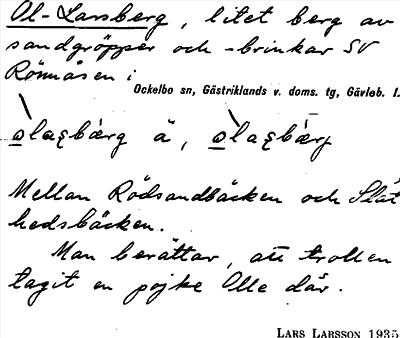 Ol-Larsberg, litet berg av
sandgröpper och -brinkar SV
Rönnåsen i
Ockelbo sn, Gästriklands v. doms. tg, Gävleb. l.
ä,
Mellan Rödsandbäcken och Slät
hedsbäcken.
Man berättar, att trollen
tagit en pojke Olle där.
LARS LARSSON 1935